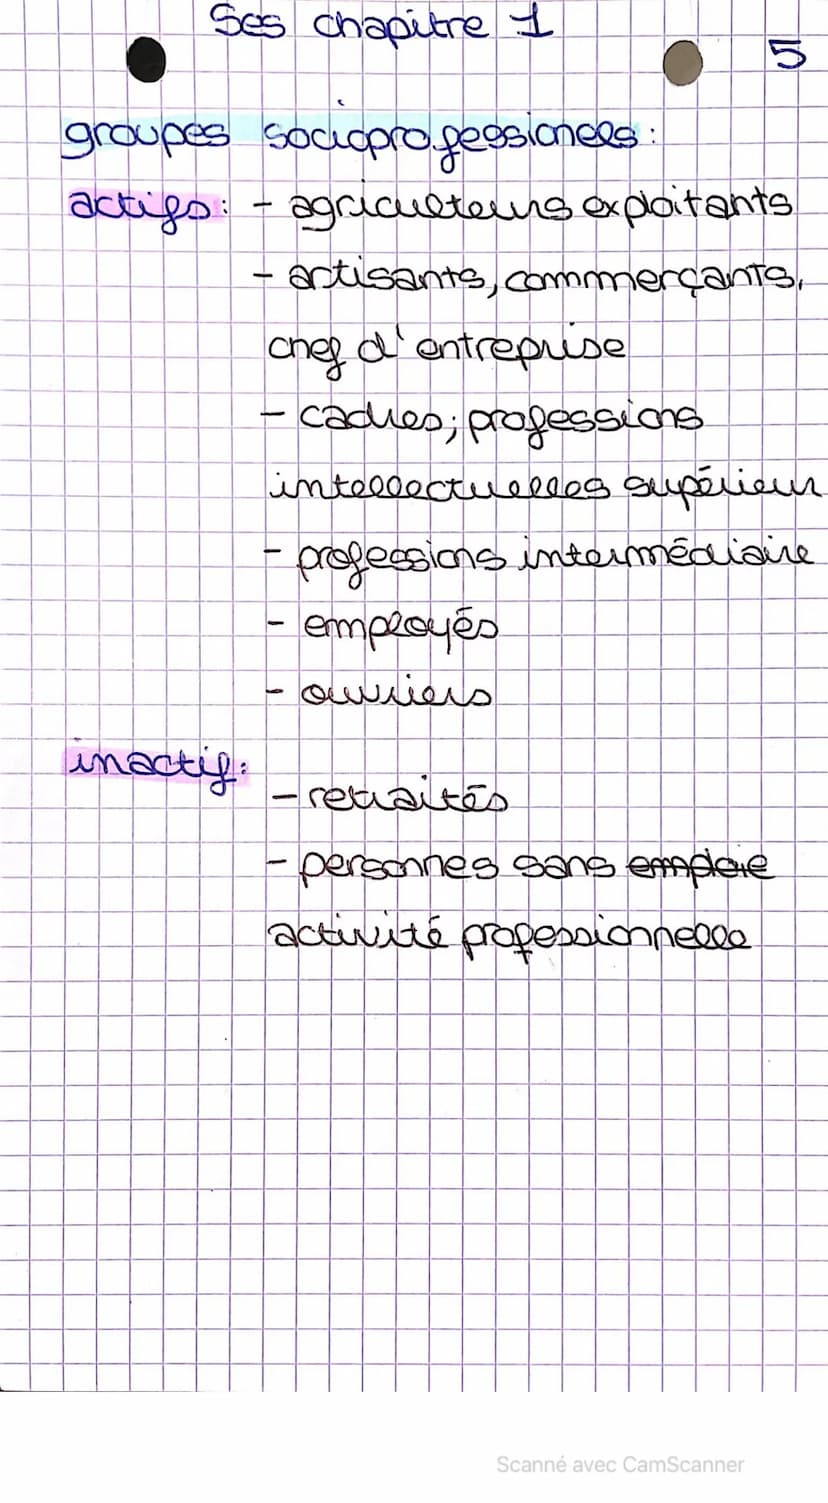 Ses chapitre 1
5
groupes socioprofessionels :
actifs : - agriculteurs exploitants
- artisants, commerçants,
chef d'entreprise
- cadres ; professions
intellectuelles supérieur
- professions intermédiaire
- employés
- ouvriers
inactif :
- retraités
- personnes sans emploie
activité professionnelle
Scanné avec CamScanner